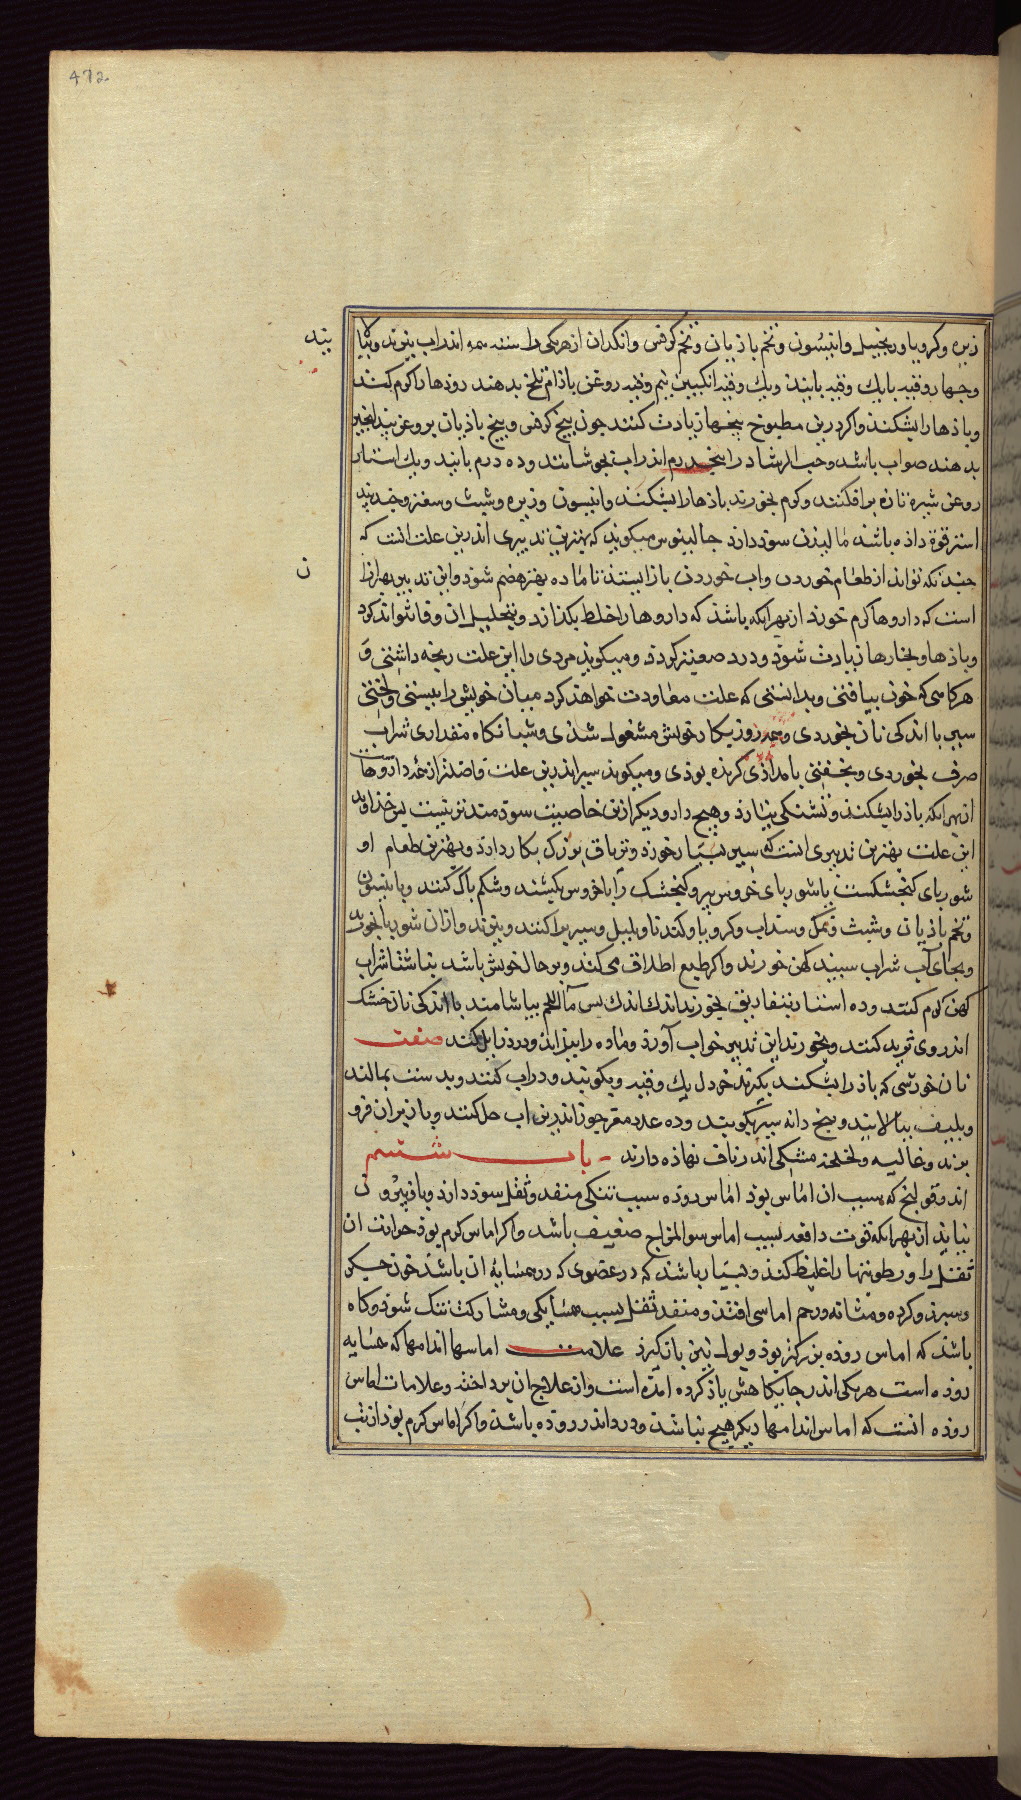 472
زیره وکرویا وزنجبیل وانیسون وتخم باذیان وتخم کرفس وانکدان ازهریکی راستند همه اندراب بپزند وپالا
یند
وچهار وقیه بایك وقیه بانید ویك وقیه انکبین نیم وقیه روغن باذام تلخ بدهند روذها راکرم کند
وباذها را بشکند واکر درین مطبوخ بیخها زیادت کنند چون بیخ کرفس وبیخ باذیان بروغن بیدانجیر
بدهند صواب باشد وحب الرشاد را پنجدرم اندراب بجوشانند وده درم بانید ویك استار
روغن شیره تازه برافکنند وکرم بخورند باذها را بشکند وانیسون وزیره وشبث وسعتر وجندبید
استر قوة داذه باشد مالیذن سوذ دارذ جالینوس میکوید که بهترین تدبیری اندرین علت انست که
چندانکه تواند از طعام خوردن واب خوردن باز ایستذ تا ماده بپزد هضم شوذ واین تدبیر بهتر ازا
ن
است که داروهاکرم خورند از بهر انکه باشذ که داروها خلط بکذازد وبتحلیل ان وفا نتواند کرد
وباذها وبخارها زیادت شوذ ودرد صعبتر کردد ومیکوید مردی را این علت رنجه داشتی و
هرکاهی که خوذ بیافتی وبدانستی که علت معاودت خواهد کرد میان خویش را ببستی ولختی
سیر با اندکی نان بخوردی وهمه روز بکار خویش مشغول شذی وشبانکاه مقداری شراب
صرف بخوردی وبخفتی بامداذی کربزه بوذی ومیکوید سیر اندرین علت فاضلتر از همه داروهاست
از بهر انکه باذ را بشکند وتشنکی نیارد وهیچ دارو دیکر ازین خاصیت سودمندتر نیست پس خداوند
این علت بهترین تدبیری انست که سیر بسیار خورد وتریاق بزرك بکار دارد وبهترین طعام او
شوربای کنجشکست یا شوربای خروس پیر وکنجشك را یا خروس بکشند وشکم پاك کنند وبا انیسون
وتخم باذیان وشبث ونمك وستداب وکرویا وکندنا وپلپل وسیر پر کنند وبپزند وازان شوربا خورند
وبجای آب شراب سپید کهن خورند واکر طبع اطلاق می کند وبر حال خویش باشد بناشتا شراب
کهن کرم کنند وده استار بتفاریق بخورند اندك اندك پس ماالحم بیاشامند با اندکی نان خشك
اندر وی ثرید کنند وبخورند این تدبیر خواب آورد وماده را بپزاند ودرد زایل کند صفت
نان خورشی که باذ را بشکند بکیرند خردل یك وقیه وبکوبند ودراب کنند وبدست بمالند
وبلیف بپالایند وپنج دانه سیر بکوبند وده عدد مغز جوز اندرین اب حل کنند وبا نیران فرو
برند وغالیه ولخلخه مشکی اندر ناف نهاذه دارند - باب ششم
اندر قولنج که سبب ان اماس بوذ اماس روذه سبب تنکی منفذ وثقل سوذ دارذ وباذ بیرون
نیاید از بهر انکه قوت دافعه بسبب اماس سوالمزاج ضعیف باشد واکر اماس کرم بوذ حرارت ان
ثقل را ورطوبتها را غلیظ کند وبسیار باشد که در عضوی که در همسایه ان باشذ خون جکر
وسپرز وکرده ومثانه ورحم اماسی افتذ ومنفذ ثقل بسبب همسایکی ومشارکت تنک شوذ وکاه
باشذ که اماس روذه بزرکتر بوذ وبول نیز بازکیرذ علامت اماسها اندامها که همسایه
روذه است هریکی اندر جایکاهش یاذ کرده امذه است واز علاج ان پرداخته وعلامات اماس
روذه انست که اماس اندامها دیکر هیچ نباشد ودرد اندر روذه باشذ واکر اماس کرم بوذ از تب